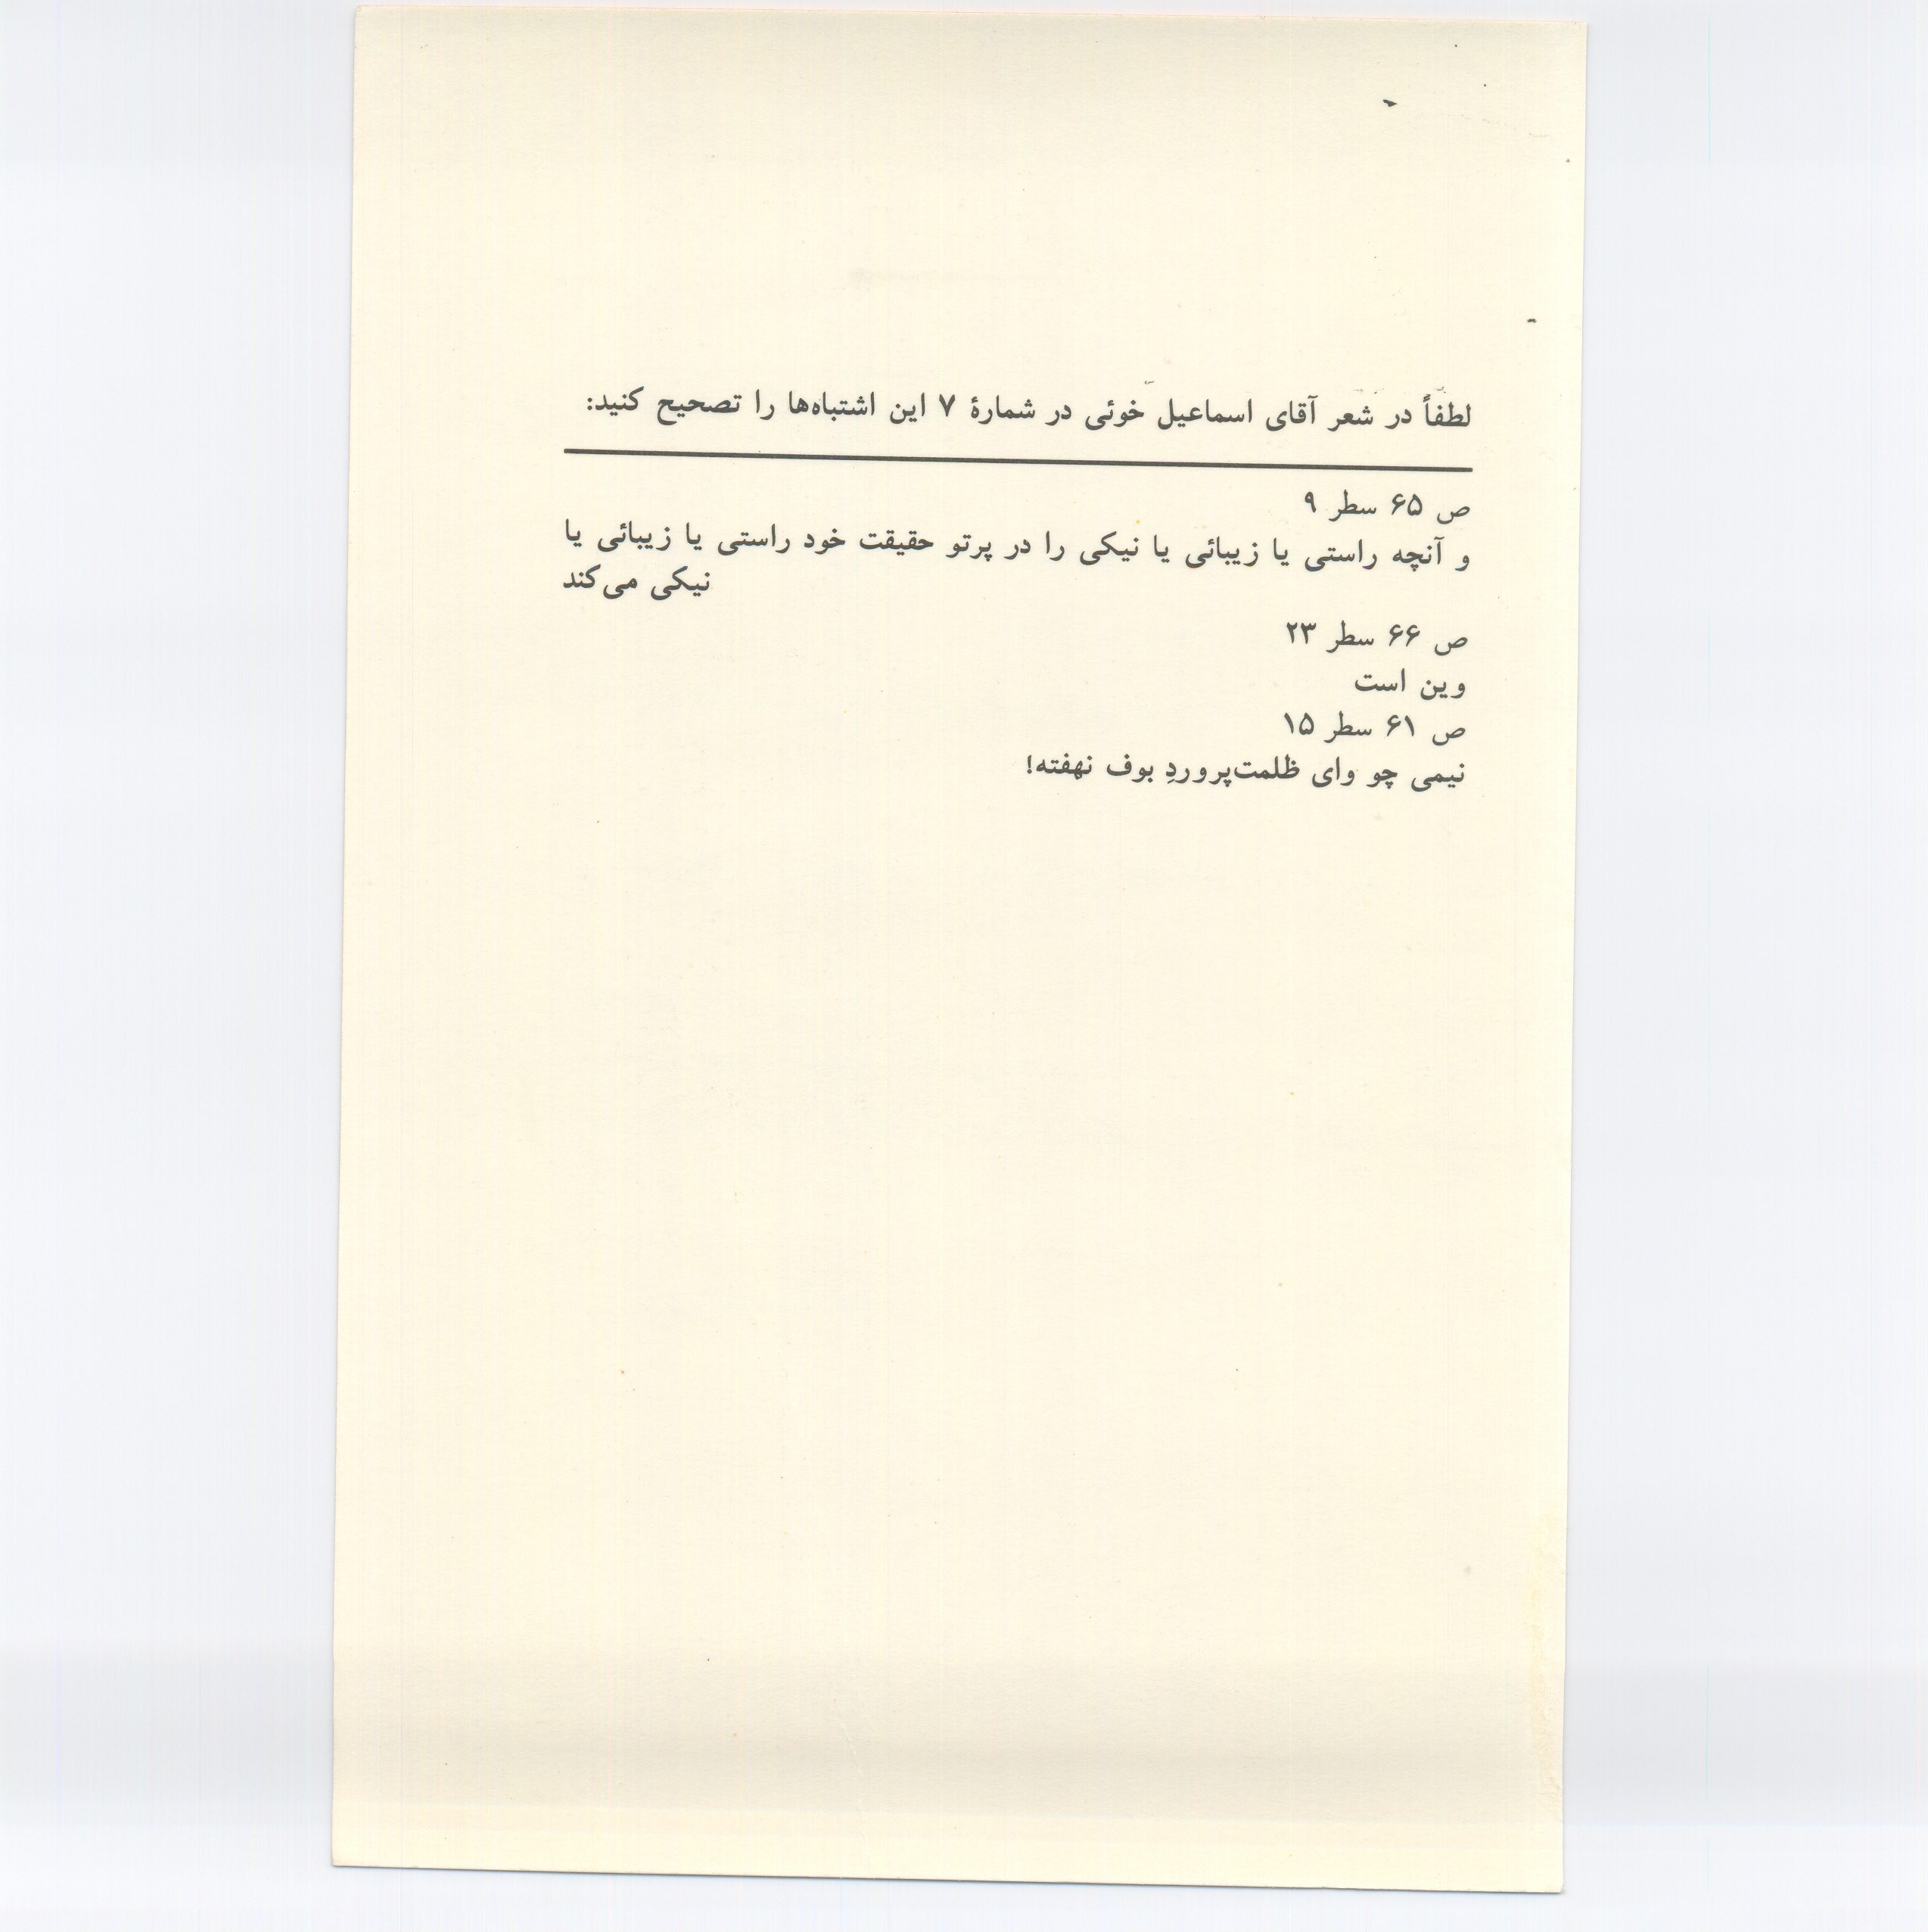 لطفاً در شعر آقای اسماعیل خوئی در شمارهٔ ۷ این اشتباه‌ها را تصحیح کنید:
ص ۶۵ سطر ۹
و آنچه راستی یا زیبائی یا نیکی را در پرتو حقیقت خود راستی یا زیبائی یا
نیکی می‌کند
ص ۶۶ سطر ۲۳
وین است
ص ۶۱ سطر ۱۵
نیمی چو وای ظلمت‌پروردِ بوف نهفته!